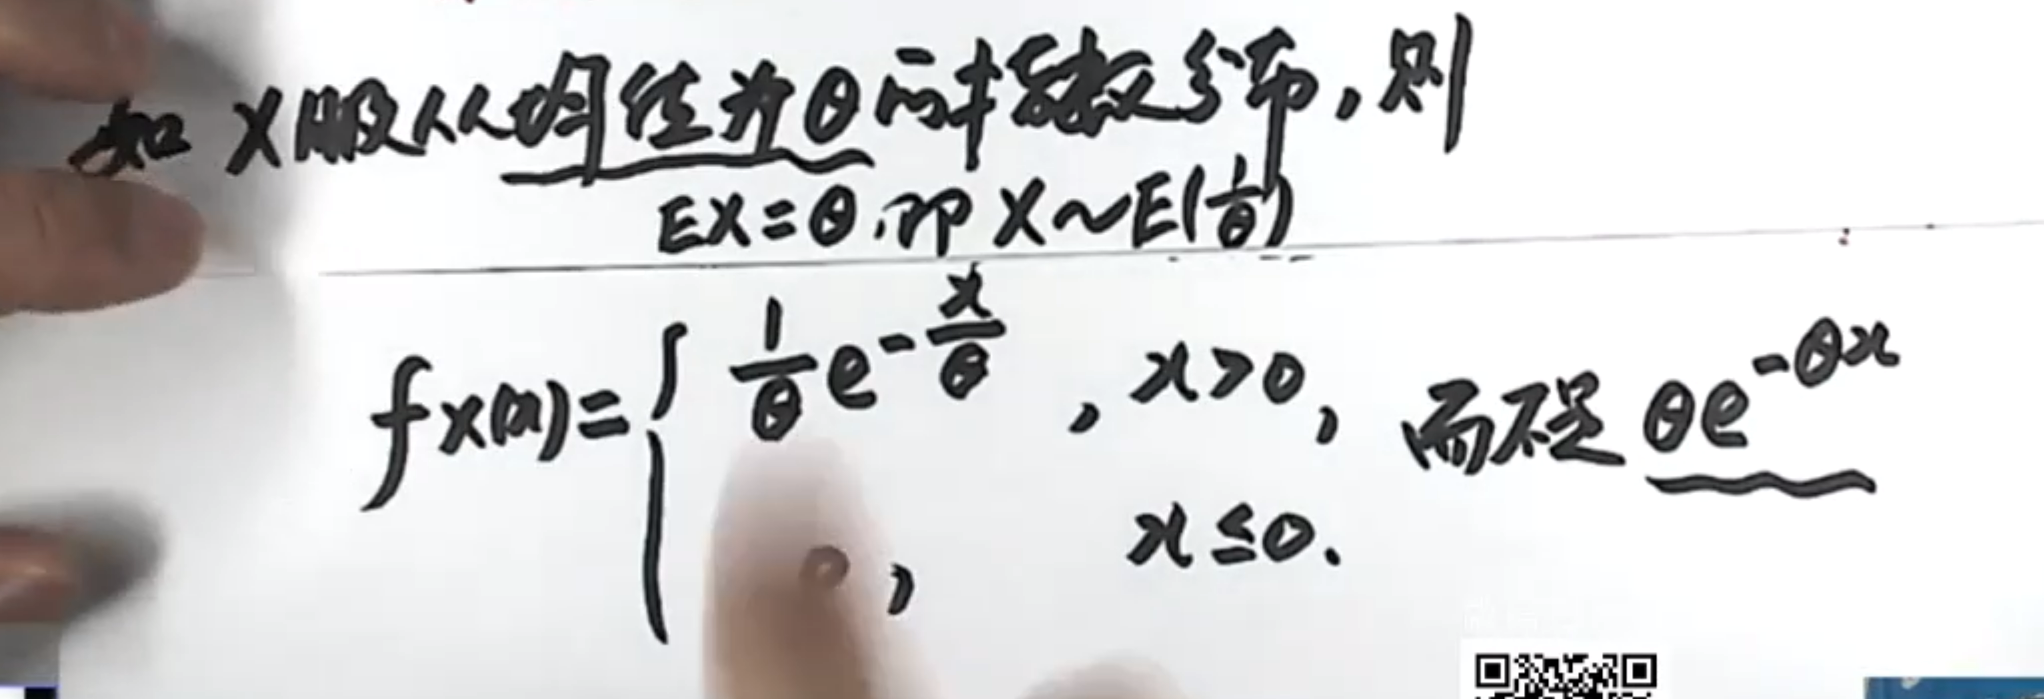 如 X服从均值为θ的指数分布,则
EX=θ,即 X~E(1/θ)
fX(x)={ 1/θ e^{-x/θ} , x>0, 而不是 θe^{-θx}
0, x≤0.